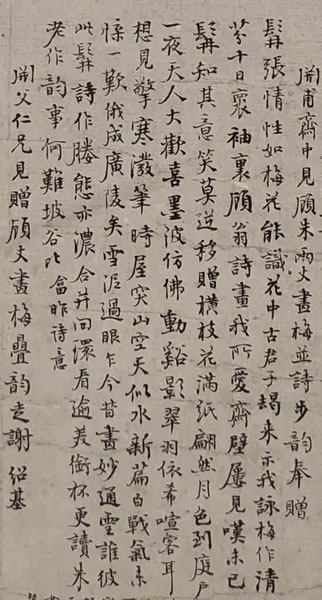 開甫齋中見顧朱兩丈畫梅並詩步韵奉贈
髯張情性如梅花能識花中古君子朅来示我詠梅作清
芬十日裛袖裏顧翁詩畫我所愛齋壁屢見嘆未已
髯知其意笑莫逆移贈横枝花滿紙翩然月色到庭戶
一夜天人大歡喜墨波仿佛動谿影翠羽依希喧客耳
想見擎寒潑筆時屋突山空天似水新篇白戰氣未
惊一歎俄成廣陵矣雪泥過眼乍今昔畫妙通靈誰彼
此髯詩作勝態亦濃合并回濛看逾美銜杯更讀朱
老作韵事何難坡谷比 盦昨诗意
開父仁兄見贈顧丈畫梅疊韵走謝 紹基